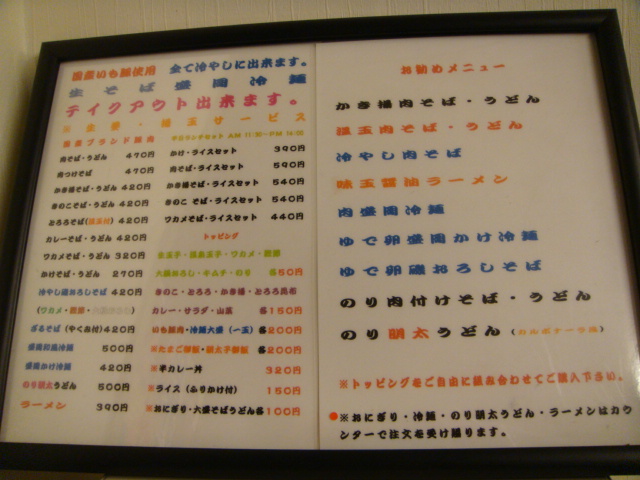 国産いも豚使用 全て冷やしに出来ます。
生そば盛岡冷麺
テイクアウト出来ます。
※生姜・温玉サービス
国産ブランド豚肉
平日ランチセット AM 11:30~PM 16:00
肉そば・うどん 470円
肉つけそば 470円
かき揚そば・うどん 420円
きのこそば・うどん 420円
とろろそば(温玉付) 420円
カレーそば・うどん 420円
ワカメそば・うどん 320円
かけそば・うどん 270円
冷やし磯おろしそば
(ワカメ・
ざるそば (やくみ付) 420円
盛岡和風冷麺 500円
盛岡かけ冷麺 420円
のり明太うどん 500円
ラーメン 390円
かけ・ライスセット 390円
肉そば・ライスセット 590円
かき揚そば・ライスセット 540円
きのこ そば・ライスセット 540円
ワカメそば・ライスセット 440円
トッピング
生玉子・温泉玉子・ワカメ・
大根おろし・キムチ・のり 各50円
きのこ・とろろ・かき揚・とろろ昆布
カレー・サラダ・山菜 各150円
いも豚肉・冷麺大盛 (一玉) 各200円
※たまご御飯・明太子御飯 各200円
※半カレー丼 320円
※ライス (ふりかけ付) 150円
※おにぎり・大盛そばうどん各100円
お勧めメニュー
かき揚肉そば・うどん
温玉肉そば・うどん
冷やし肉そば
味玉醤油ラーメン
肉盛岡冷麺
ゆで卵盛岡かけ冷麺
ゆで卵磯おろしそば
のり肉付けそば・うどん
のり明太うどん (カルボナーラ風)
※トッピングをご自由に組み合わせてご購入下さい。
※おにぎり・冷麺・のり明太うどん・ラーメンはカウ
ンターで注文を受け賜ります。